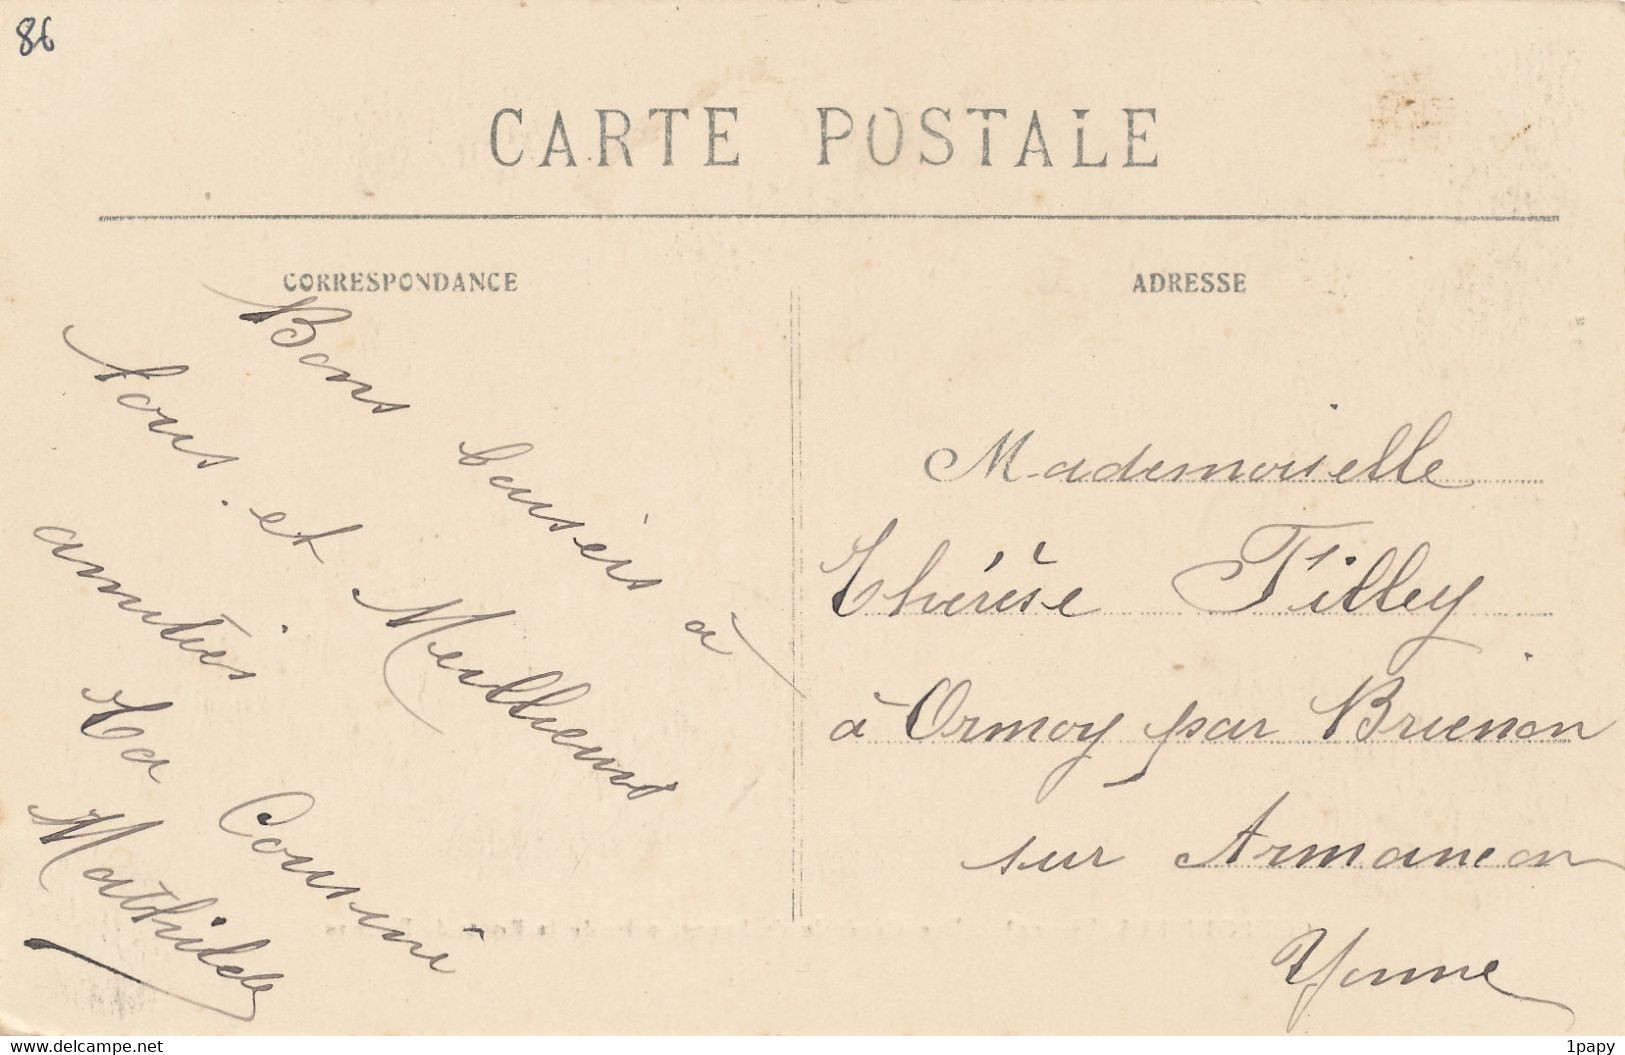 86
CARTE POSTALE
CORRESPONDANCE
ADRESSE
Bons baisers à
tous et Meilleures
amitiés
Ta Cousine
Mathilde
Mademoiselle
Thérèse Tilley
à Ormoy par Brienon
sur Armançon
Yonne
www.delcampe.net
1papy